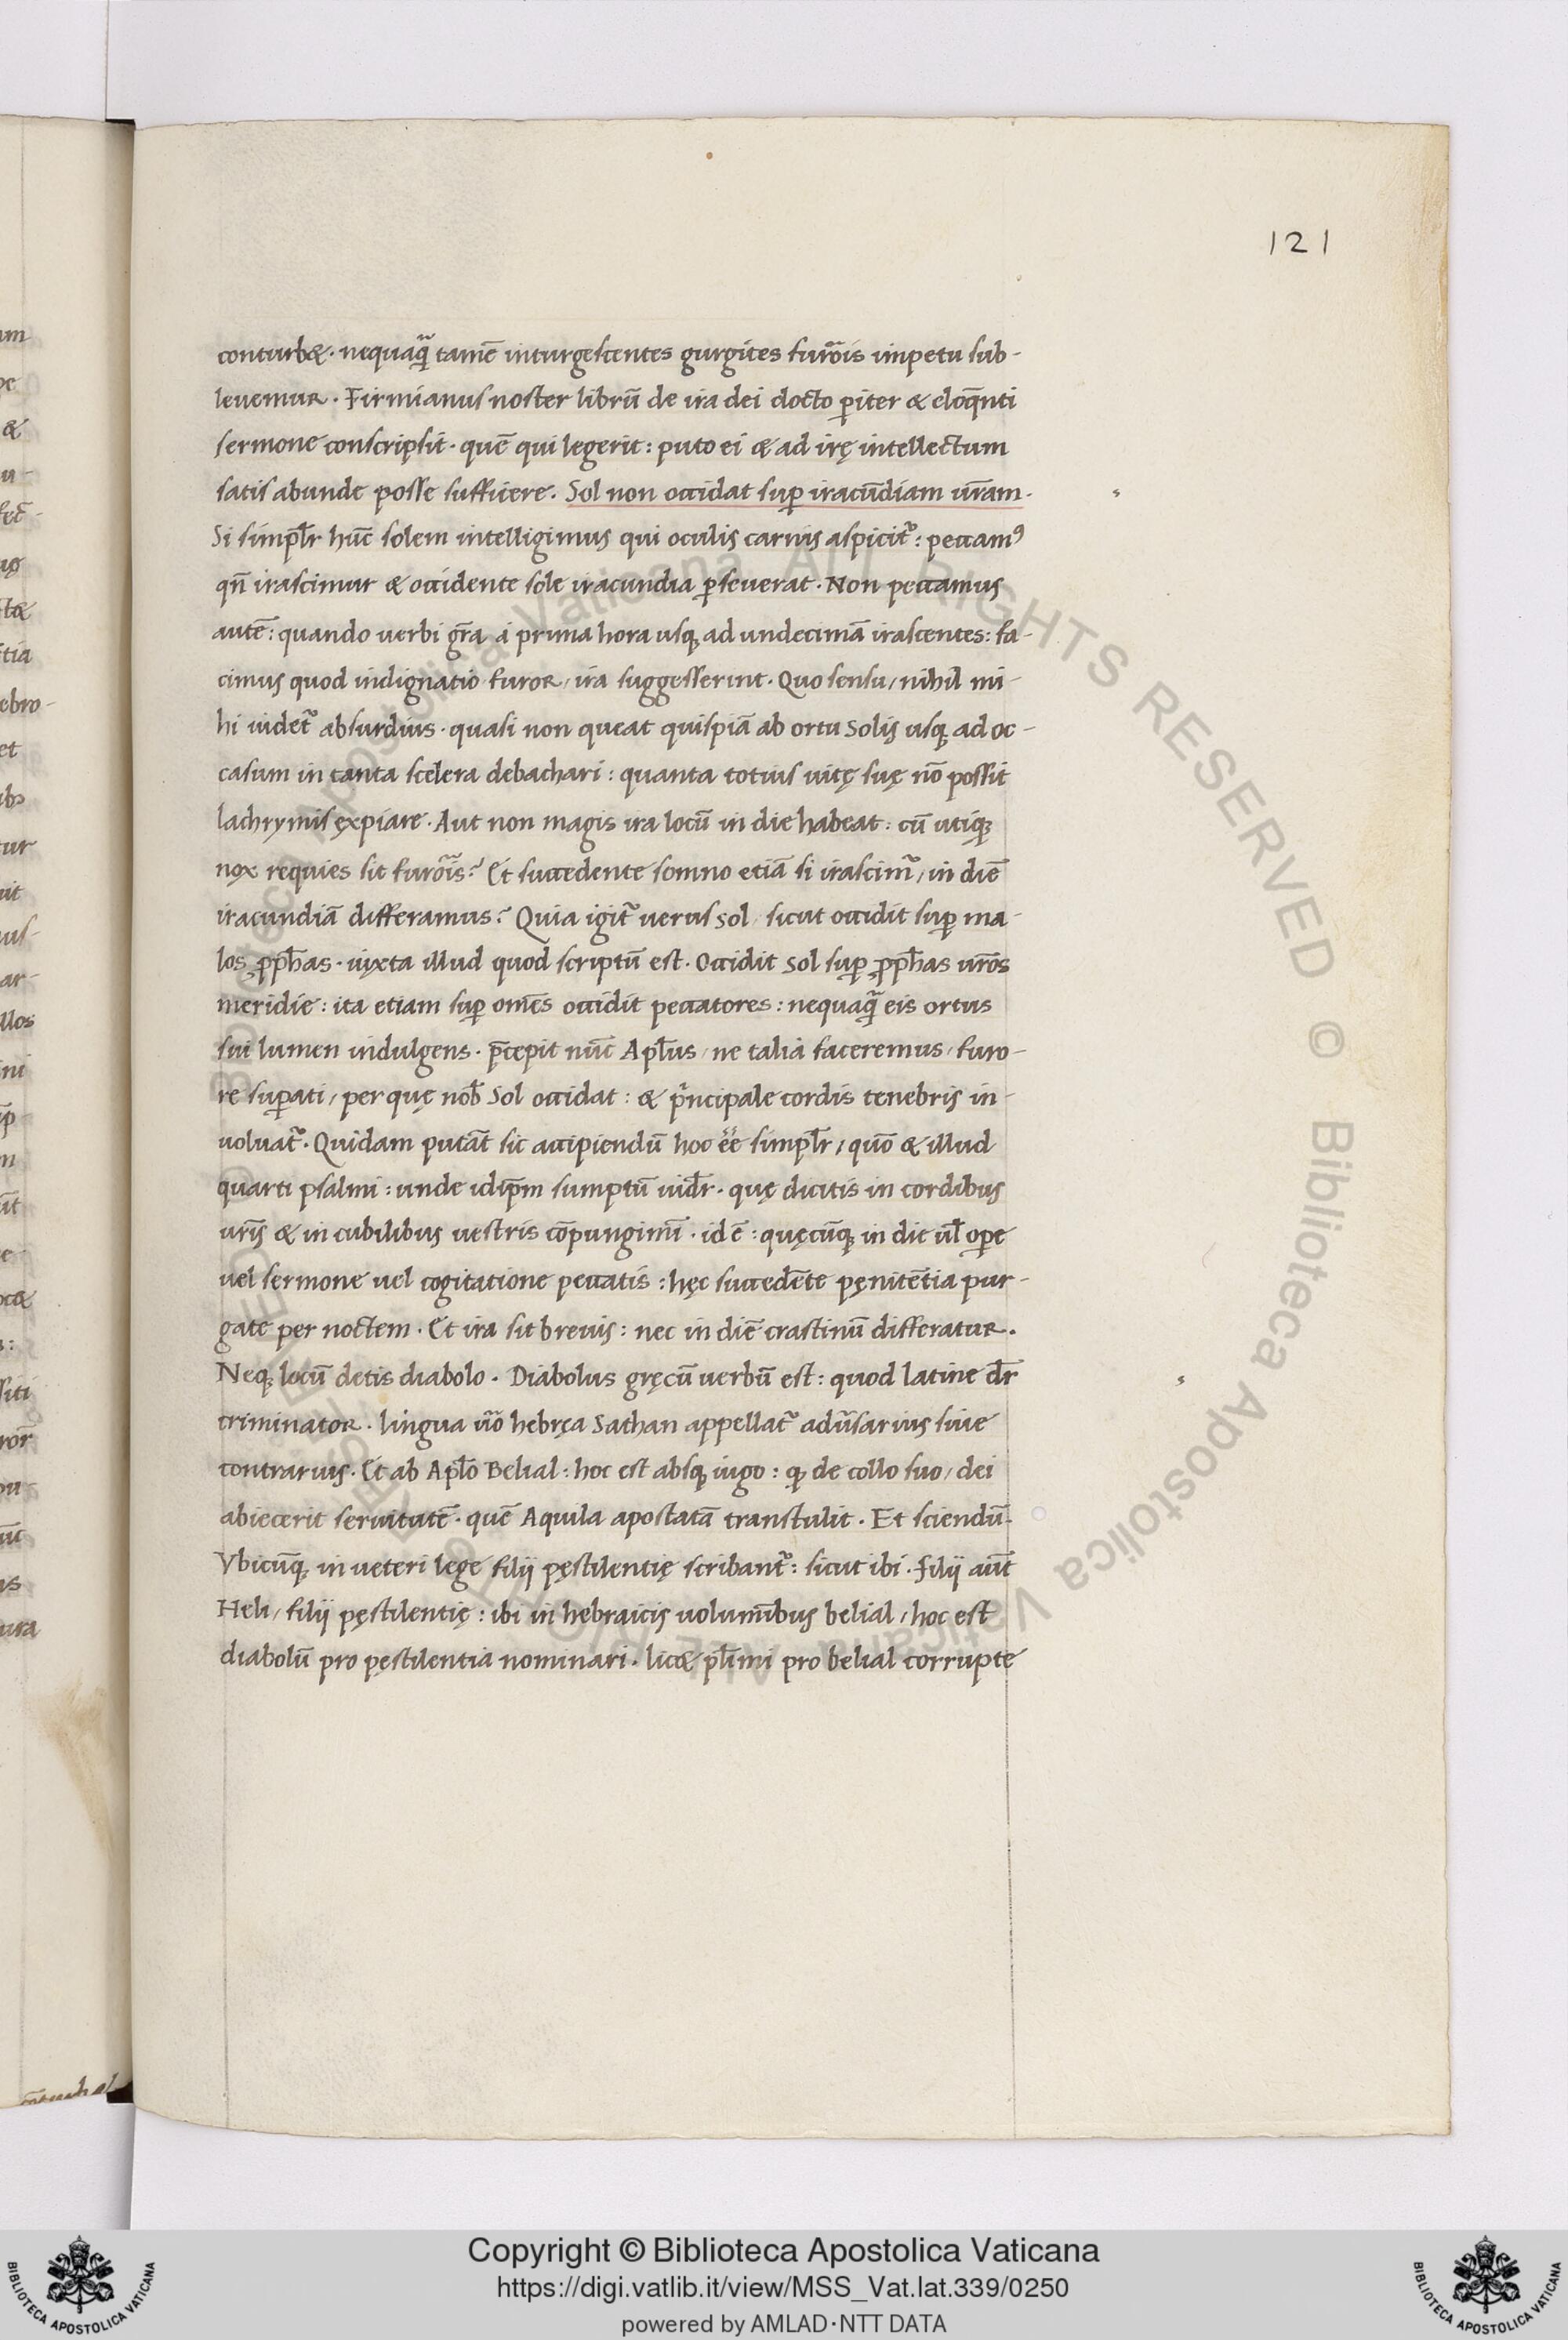 121
conturb&. nequaq̃ tamẽ inturgescentes gurgites furõis impetu sub-
leuemur. Firmianus noster librũ de ira dei docto ꝑiter & eloq̃nti
sermone conscripsit. quẽ qui legerit: puto ei & ad irę intellectum
satis abunde posse sufficere. Sol non occidat suꝑ iracũdiam ur̃am.
Si simpl̃r hũc solem intelligimus qui oculis carnis aspicit᷑: peccamꝰ
qñ irascimur & occidente sole iracundia ꝑseuerat. Non peccamus
autẽ: quando uerbi gr̃a a prima hora usqꝫ ad undecimã irascentes: fa-
cimus quod indignatio furor, ira suggesserint. Quo sensu, nihil mi-
hi uidet᷑ absurdius. quasi non queat quispiã ab ortu Solis usqꝫ ad oc-
casum in tanta scelera debachari: quanta totius uitę suę nõ possit
lachrymis ęxpiare. Aut non magis ira locũ in die habeat: cũ utiqꝫ
nox requies sit furõis? Et succedente somno etiã si irascim᷑, in diẽ
iracundiã differamus? Quia igit᷑ uerus sol, sicut occidit suꝑ ma-
los ꝓph̃as. iuxta illud quod scriptũ est. Occidit sol suꝑ ꝓph̃as ur̃os
meridie: ita etiam suꝑ om̃es occidit peccatores: nequaq̃ eis ortus
sui lumen indulgens. p̃cepit nũc Apl̃us, ne talia faceremus, furo-
re suꝑati, per quę nob̃ Sol occidat: & p̃ncipale cordis tenebris in-
uoluat᷑. Quidam putãt sic accipiendũ hoc ẽe simpl̃r, quõ & illud
quarti psalmi: unde idip̃m sumptũ uid̃r. quę dicitis in cordibus
ur̃is & in cubilibus uestris cõpungimĩ. id ẽ: quęcũqꝫ in die ul̃ oꝑe
uel sermone uel cogitatione peccatis: hęc succedẽte pęnitẽtia pur-
gate per noctem. Et ira sit breuis: nec in diẽ crastinũ differatur.
Neqꝫ locũ detis diabolo. Diabolus gręcũ uerbũ est: quod latine d̃r
criminator. lingua uõ hebręa Sathan appellat᷑ adũsarius siue
contrarius. Et ab Apl̃o Belial: hoc est absqꝫ iugo: qꝫ de collo suo, dei
abiecerit seruitutẽ. quẽ Aquila apostatã transtulit. Et sciendũ.
Vbicũqꝫ in ueteri lege filij pęstilentię scribant᷑: sicut ibi. Filij aũt
Heli, filij pęstilentię: ibi in hebraicis uolumĩbus belial, hoc est
diabolũ pro pęstilentia nominari. lic& pl̃imi pro belial corrupte
Copyright © Biblioteca Apostolica Vaticana
https://digi.vatlib.it/view/MSS_Vat.lat.339/0250
powered by AMLAD·NTT DATA